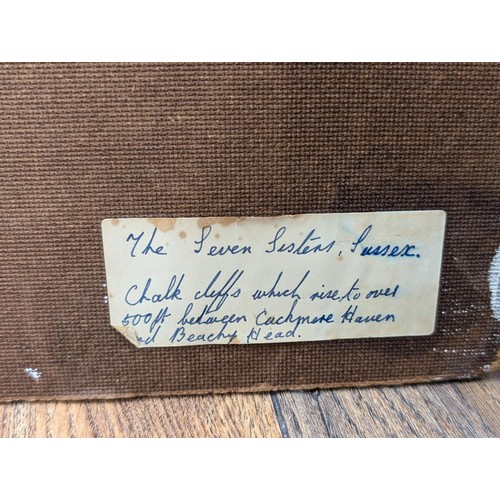 The Seven Sisters, Sussex.
Chalk cliffs which rise to over
500ft between Cuckmere Haven
nd Beachy Head.